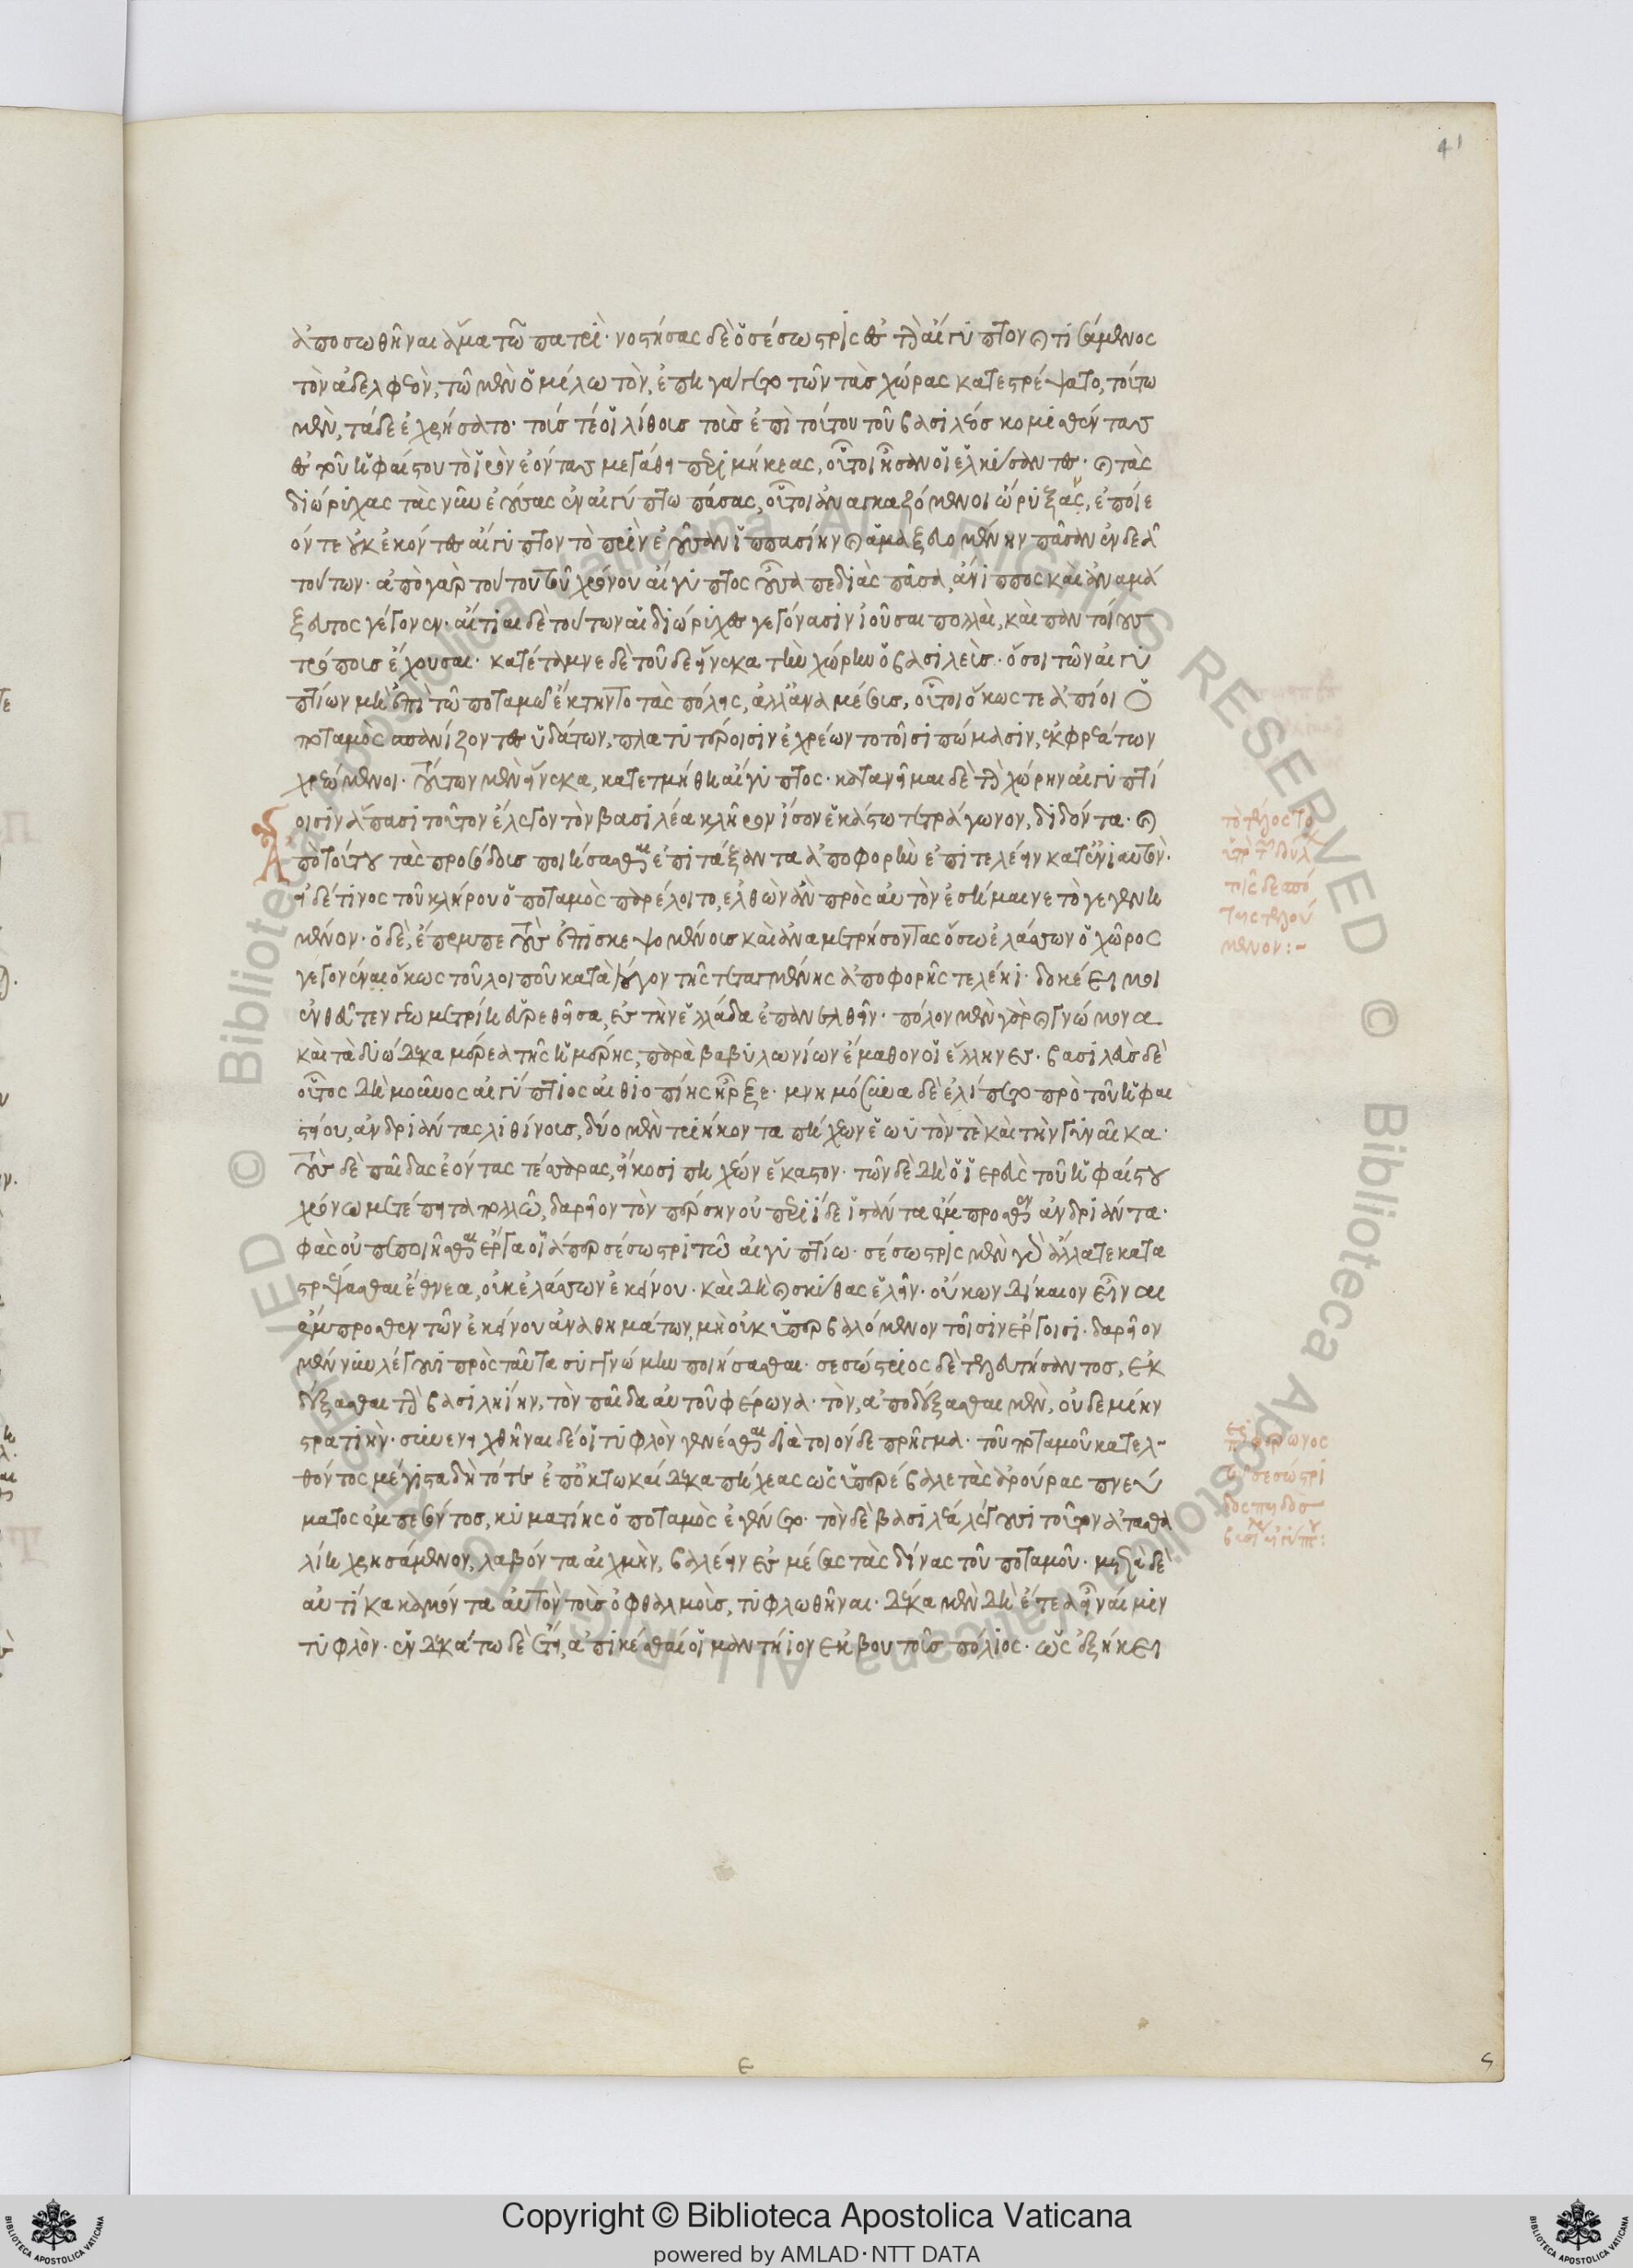 41
ἀποσωθῆναι ἅμα τῶ πατρί· νοστήσας δὲ ὁ σέσωστρις ἐς τὴν αἴγυπτον καὶ τισάμενος
τὸν ἀδελφεὸν, τῶ μὲν ὁμίλω τὸν, ἐπηγάγετο τῶν τὰς χώρας κατεστρέψατο, τούτω
μὲν, τάδε ἐχρήσατο· τούς τέ οἱ λίθους τοὺς ἐπὶ τούτου τοῦ βασιλέος κομισθέντας
ἐς τοῦ ἡφαίστου τὸ ἱερὸν ἐόντας μεγάθει περιμήκεας, οὗτοι ἦσαν οἱ ἑλκύσαντες· καὶ τὰς
διώρυχας τὰς νῦν ἐούσας ἐν αἰγύπτω πάσας, οὗτοι ἀναγκαζόμενοι ὤρυξαν, ἐποίε
όν τε οὐκ ἑκόντες αἴγυπτον τὸ πρὶν ἐοῦσαν ἱππασίμην καὶ ἁμαξευομένην πᾶσαν ἐνδεᾶ
τούτων· ἀπὸ γὰρ τούτου τοῦ χρόνου αἴγυπτος ἐοῦσα πεδιὰς πᾶσα, ἄνιππος καὶ ἀναμά
ξευτος γέγονεν· αἴτιαι δὲ τούτων αἱ διώρυχες γεγόνασιν ἐοῦσαι πολλαὶ, καὶ παντοίους
τρόπους ἔχουσαι· κατέταμνε δὲ τοῦδε εἵνεκα τὴν χώρην ὁ βασιλεύς· ὅσοι τῶν αἰγυ
πτίων μὴ ἐπὶ τῶ ποταμῶ ἔκτηντο τὰς πόλις, ἀλλ' ἀνὰ μέσους, οὗτοι ὅκως τε ἀπίοι ὁ
ποταμὸς σπανίζοντες ὑδάτων, πλατυτέροισιν ἐχρέωντο τοῖσι πώμασιν, ἐκ φρεάτων
χρεώμενοι· τούτων μὲν εἵνεκα, κατετμήθη αἴγυπτος· κατανεῖμαι δὲ τὴν χώρην αἰγυπτί
οισιν ἅπασι τοῦτον ἔλεγον τὸν βασιλέα κλῆρον ἴσον ἑκάστω τετράγωνον, διδόντα· καὶ
ἀπὸ τούτου τὰς προσόδους ποιήσασθαι ἐπιτάξαντα ἀποφορὴν ἐπιτελέειν κατ' ἐνιαυτόν·
εἰ δέ τινος τοῦ κλήρου ὁ ποταμὸς παρέλοιτο, ἐλθὼν ἂν πρὸς αὐτὸν ἐσήμαινε τὸ γεγενη
μένον· ὁ δὲ, ἔπεμπε τοὺς ἐπισκεψομένους καὶ ἀναμετρήσοντας ὅσω ἐλάσσων ὁ χῶρος
γέγονεν ὅκως τοῦ λοιποῦ κατὰ λόγον τῆς τεταγμένης ἀποφορῆς τελέηι· δοκέει μοι
ἐνθεῦτεν γεωμετρίη εὑρεθεῖσα, ἐς τὴν ἑλλάδα ἐπανελθεῖν· πόλον μὲν γὰρ καὶ γνώμονα
καὶ τὰ δυώδεκα μέρεα τῆς ἡμέρης, παρὰ βαβυλωνίων ἔμαθον οἱ ἕλληνες· βασιλεὺς δὲ
οὗτος δὴ μοῦνος αἰγύπτιος αἰθιοπίης ἦρξε· μνημόσυνα δὲ ἐλίπετο πρὸ τοῦ ἡφαι
στείου, ἀνδριάντας λιθίνους, δύο μὲν τριήκοντα πήχεων ἑωυτόν τε καὶ τὴν γυναῖκα·
τοὺς δὲ παῖδας ἐόντας τέσσερας, εἴκοσι πηχέων ἕκαστον· τῶν δὲ δὴ ὁ ἱερεὺς τοῦ ἡφαίστου
χρόνω μετέπειτα πολλῶ, δαρεῖον τὸν πέρσην οὐ περιεῖδε ἱστάντα ἔμπροσθεν ἀνδριάντα·
φὰς οὔ πεποιῆσθαι ἔργα οἷάπερ σεσώστρι τῶ αἰγυπτίω· σέσωστρις μὲν γὰρ ἄλλα τε κατα
στρέψασθαι ἔθνεα, οὐκ ἐλάσσων ἐκείνου· καὶ δὴ καὶ σκύθας ἑλεῖν· οὔκων δίκαιον εἶναι
ἔμπροσθεν τῶν ἐκείνου ἀναθημάτων, μὴ οὐκ ὑπερβαλόμενον τοῖσιν ἔργοισι· δαρεῖον
μέν νυν λέγουσι πρὸς ταῦτα συγγνώμην ποιήσασθαι· σεσώστριος δὲ τελευτήσαντος, ἐκ
δέξασθαι τὴν βασιληίην, τὸν παῖδα αὐτοῦ φερῶνα· τὸν, ἀποδέξασθαι μὲν, οὐδεμίην
στρατιήν· συνενειχθῆναι δέ οἱ τυφλὸν γενέσθαι διὰ τοιόνδε πρῆγμα· τοῦ ποταμοῦ κατελ-
θόντος μέγιστα δὴ τότε ἐπ' ὀκτωκαίδεκα πήχεας ὡς ὑπερέβαλε τὰς ἀρούρας πνεύ
ματος ἐμπεσόντος, κυματίης ὁ ποταμὸς ἐγένετο· τὸν δὲ βασιλέα λέγουσι τοῦτον ἀτασθα
λίη χρησάμενον, λαβόντα αἰχμὴν, βαλέειν ἐς μέσας τὰς δίνας τοῦ ποταμοῦ· μετὰ δὲ
αὐτίκα καμόντα αὐτὸν τοὺς ὀφθαλμοὺς, τυφλωθῆναι· δέκα μὲν δὴ ἔτεα εἶναί μιν
τυφλόν· ἑνδεκάτω δὲ ἔτει, ἀπικέσθαι οἱ μαντήιον ἐκ βουτοῦς πόλιος· ὡς ἐξήκει
τῆς δὲ ἀπό
Copyright © Biblioteca Apostolica Vaticana
powered by AMLAD·NTT DATA